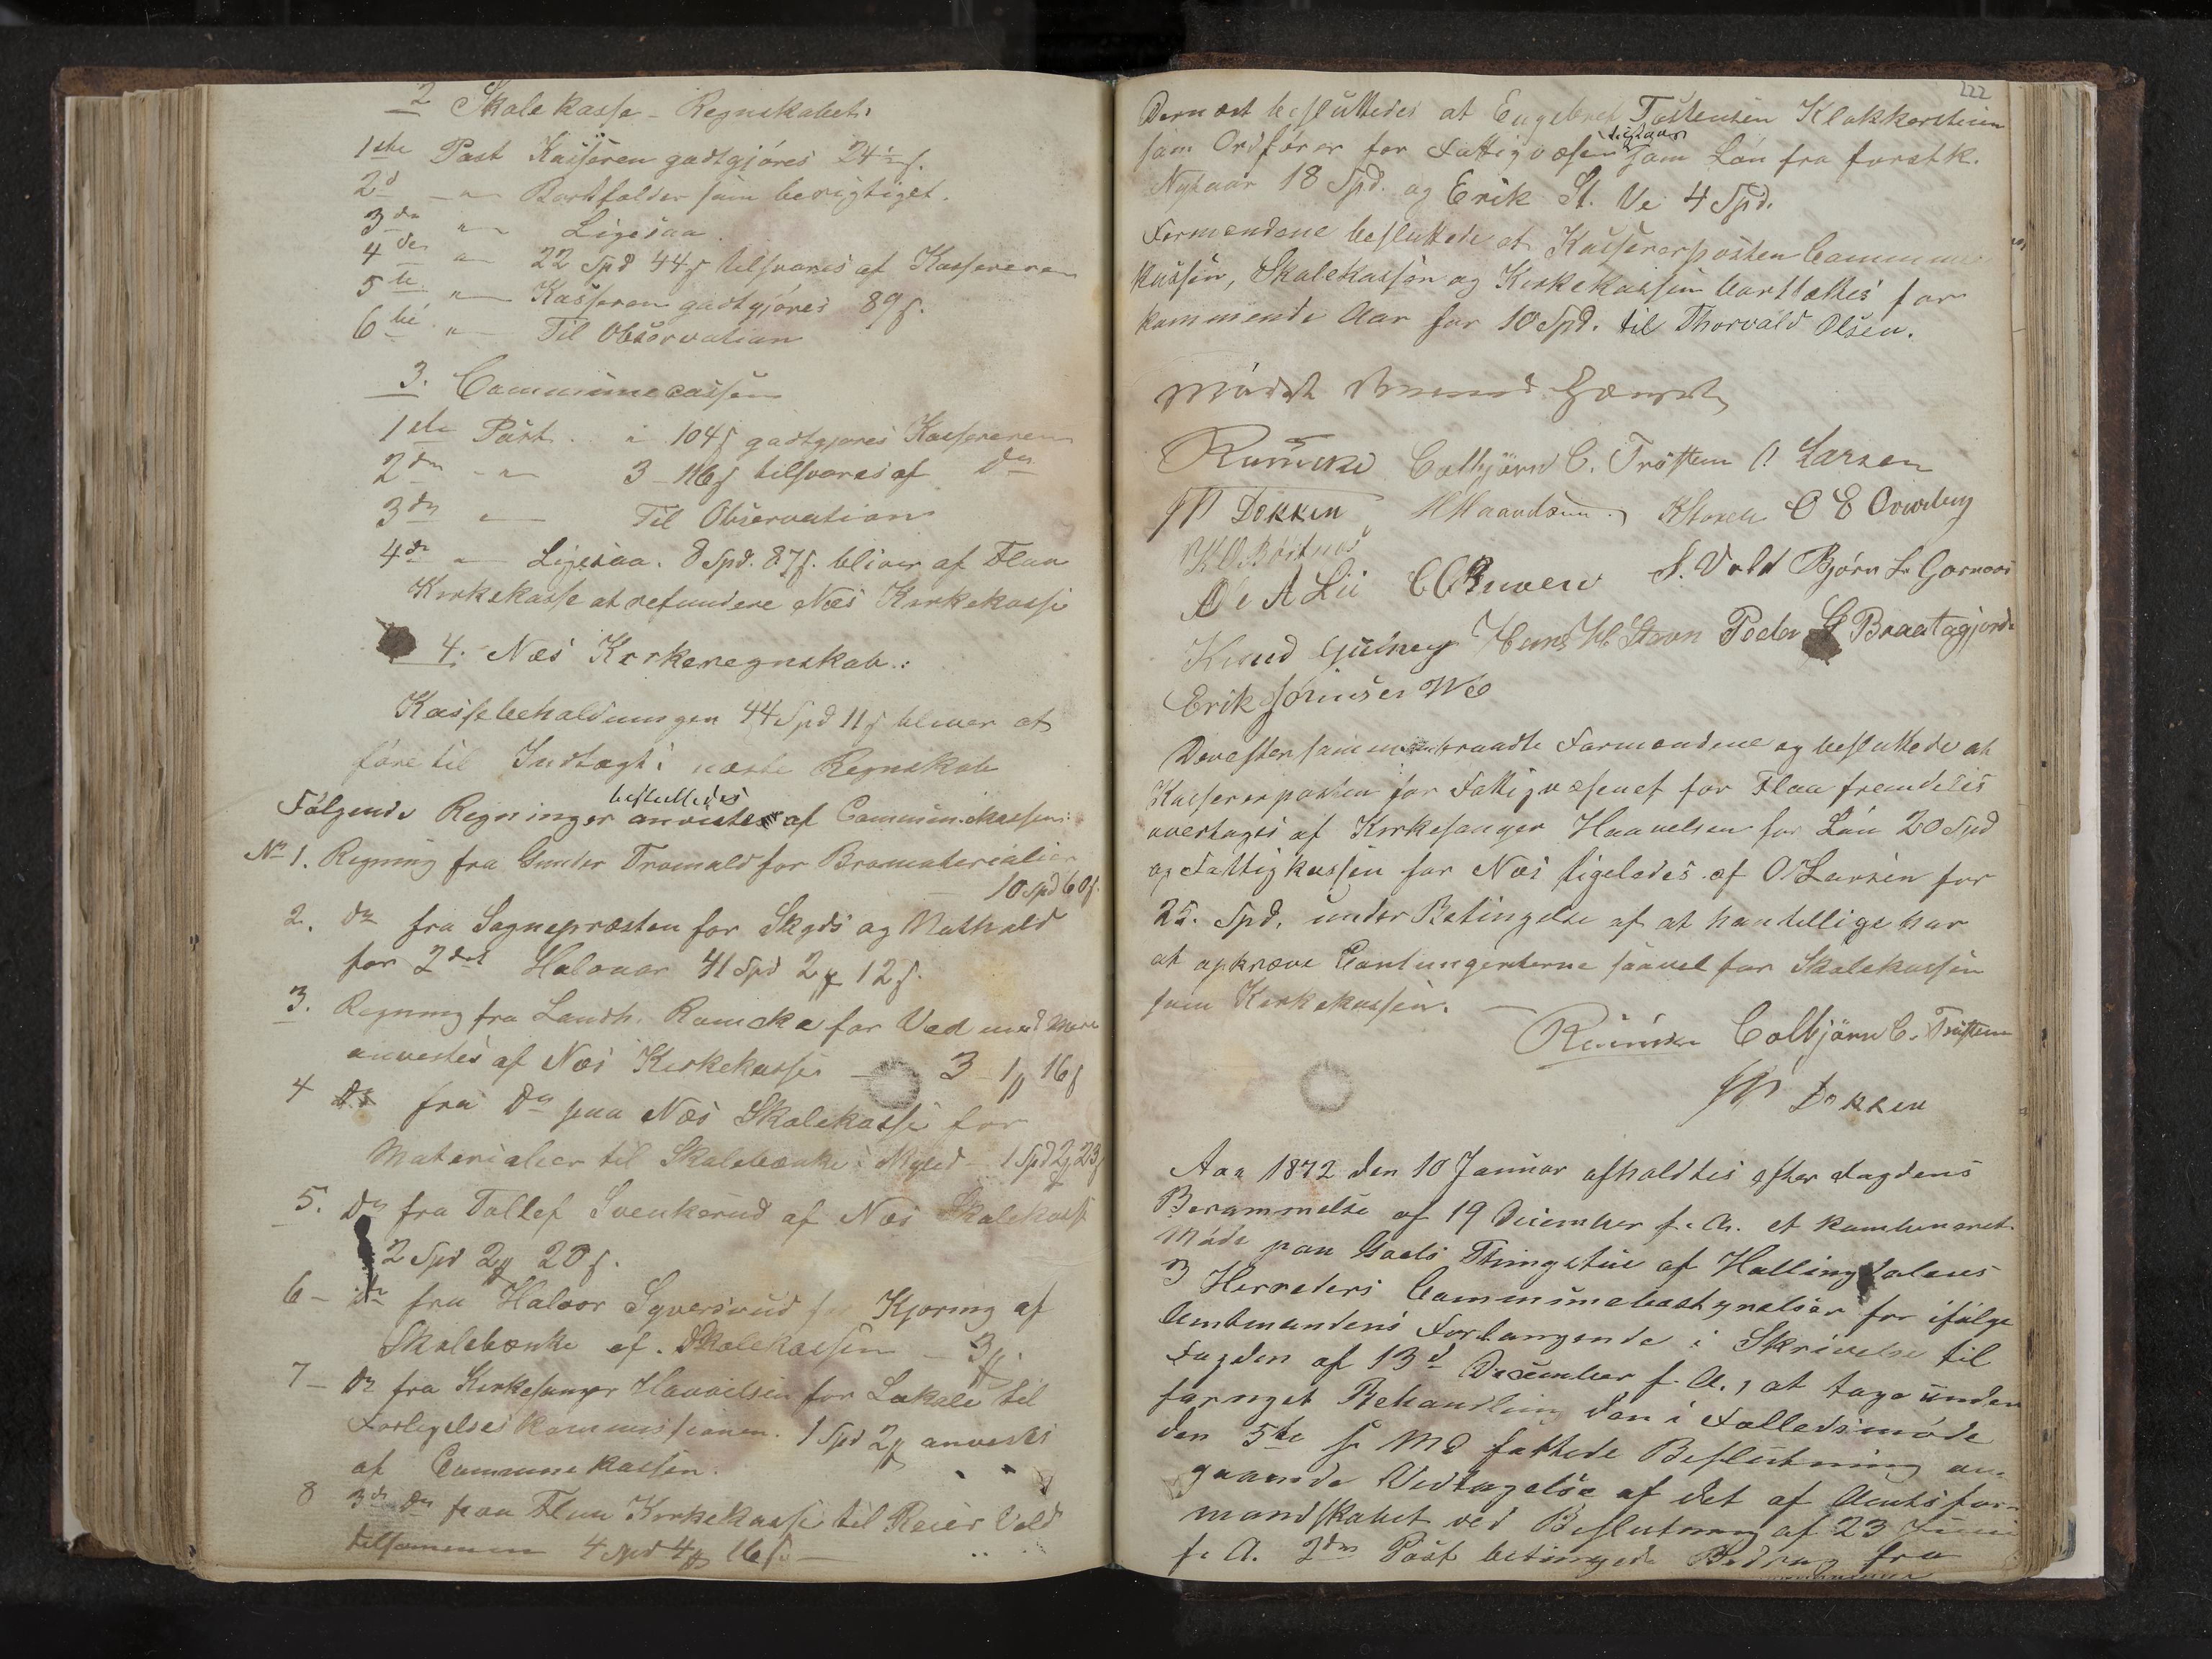 2 Skolekasse-Regnskabet:
1ste Post Kasseren godtgjøres 24½ s.
2d — " — Bortfalder som berigtiget.
3die " — Ligesaa.
4de " — 22 Spd 44 s tilsvares af Kassereren
5te " — Kasseren godtgjøres 89 s.
6te " — Til Observation
3. Communecassen
1ste Post .. i 104 s godtgjøres Kassereren
2den - " - 3 - 116 s tilsvares af Do
3die " — Til Observation
4de " — Ligesaa. 8 Spd. 87 s. bliver af Flaa
Kirkekasse at refundere Næs Kirkekasse
4. Næs Kirkeregnskab.:
Kassebeholdningen 44 Spd 11 s bliver at
føre til Indtægt i næste Regnskab
besluttedes
Følgende Regninger anvistes af Commünekassen:
No 1. Regning fra Gunder Tromald for Bromaterialier
10 Spd 60 s.
2. Do fra Sognepræsten for Skyds og Mathold
for 2det Halvaar 41 Spd 2 ƒ 12 s.
3. Regning fra Landh. Ramcke for Ved med mere
anvistes af Næs Kirkekasse — 3 - 1 ƒ 16 s
4 Do fra Do paa Næs Skolekasse for
Materialier til Skolebænke i 1 Spd 2 ƒ 23 s
5. Do fra Tollef Svenkerud af Næs Skolekasse
2 Spd 2 ƒ 20 s.
6 — Do fra Halvor Syversrud for Kjøring af
Skolebænke af Skolekassen — 3 ƒ.
7 — Do fra Kirkesanger Haavelsen for Lokale til
Forligelseskommissionen. 1 Spd 2 ƒ anvistes
af Communekassen.
8 3de Do paa Flaa Kirkekasse til Reier Vold
tilsammen 4 Spd 4 ƒ 16 s. —
222
Dernæst besluttedes at Engebret Tostensen Klokkersteien
ligesaa
som Ordfører for Fattigvæsen som Løn fra forstk.
Nytaar 18 Spd. og Erik St. Ve 4 Spd.
Formændene besluttede at Kassererposten Commune
kassen, Skolekassen og Kirkekassen bortsattes for
kommende Aar for 10 Spd. til Thorvald Olsen.
Mødet hævet
Ramcke Colbjørn C. Trøstem O Larsen
Dokken HHaandsen. KStoren O E Overberg
K O Børtnes
A Lii S. Vold Bjørn L. Gornæss
Knud Gülney Hans H Stavn Peder G Braatagjorde
Erik Jønnsen We
Derefter sammentraadte Formændene og besluttede at
Kassererposten for Fattigvæsenet for Flaa fremdeles
overtages af Kirkesanger Haavelsen for Løn 20 Spd
og Fattigkassen for Næs ligeledes af O Larsen for
25. Spd. under Betingelse af at han tillige har
at opkræve Contingenterne saavel for Skolekassen
som Kirkekassen.
Ramcke Colbjørn C. Trøstem
Dokken
Aar 1872 den 10 Januar afholdtes efter Fogdens
Berammelse af 19 December f. A. et kombineret
Møde paa Goels Thingstue af Hallingdalens
3 Herreders Communebestyrelser for ifølge
Amtmandens Forlangende i Skrivelse til
Fogden af 13d December f. A., at tage under
fornyet Behandling den i Fælledsmøde
den 5te s. Md fattede Beslutning an-
gaaende Vedtagelse af det af Amtsfor-
mandskabet ved Beslutning af 23 Juni
f. A. 2den Post betingede Bidrag fra